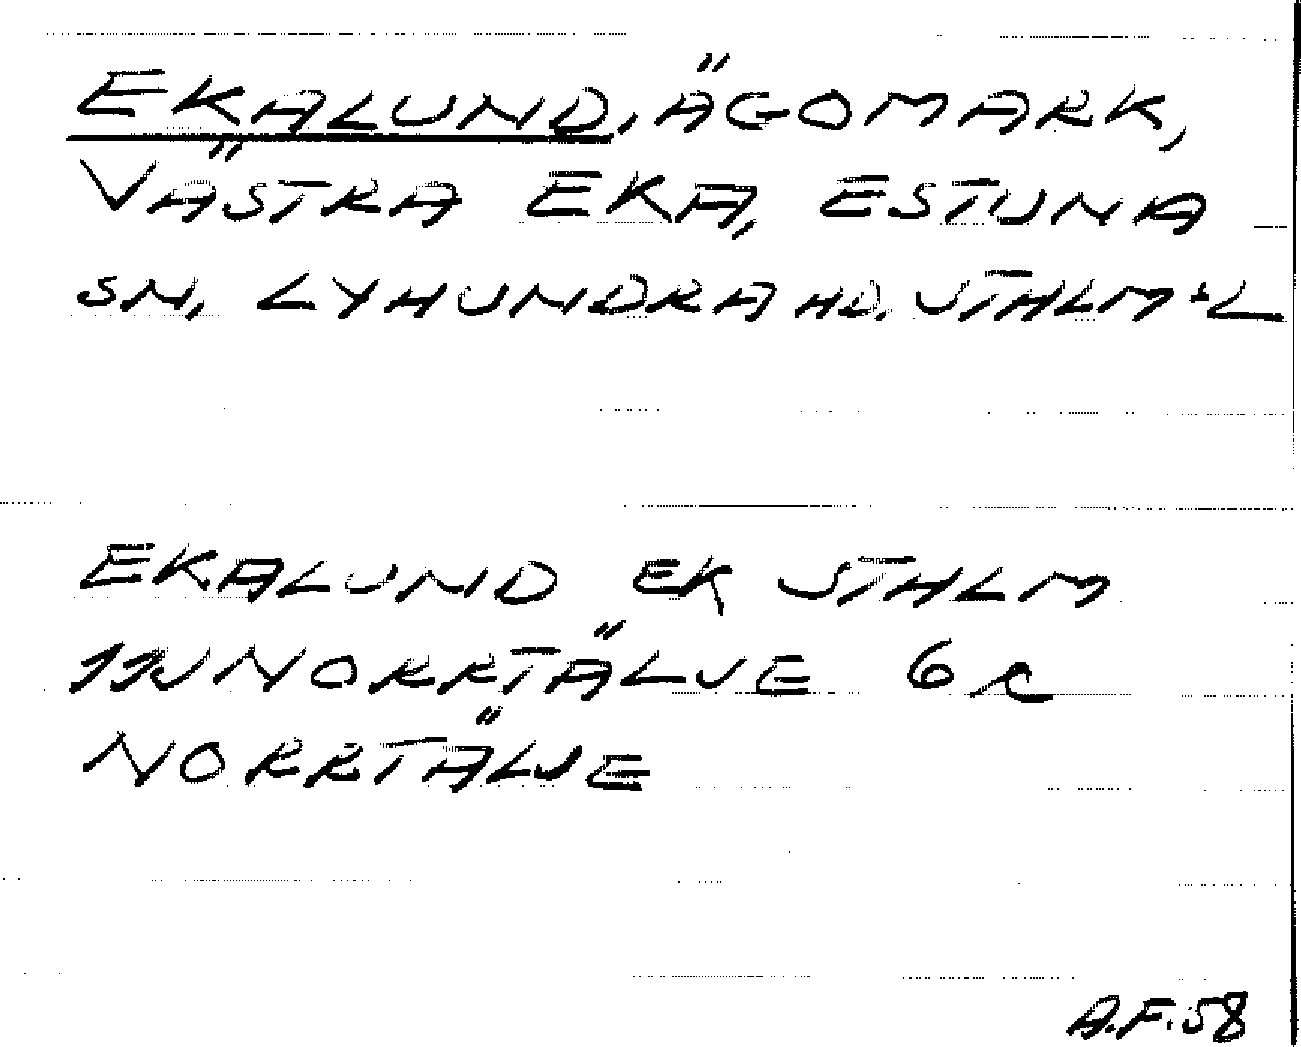 EKALUND, ÄGOMARK,
VÄSTRA EKA, ESTUNA
SN, LYHUNDRA HD. STHLM:S L
EKALUND EK STHLM
11J NORRTÄLJE 6 c
NORRTÄLJE
A.F. 58